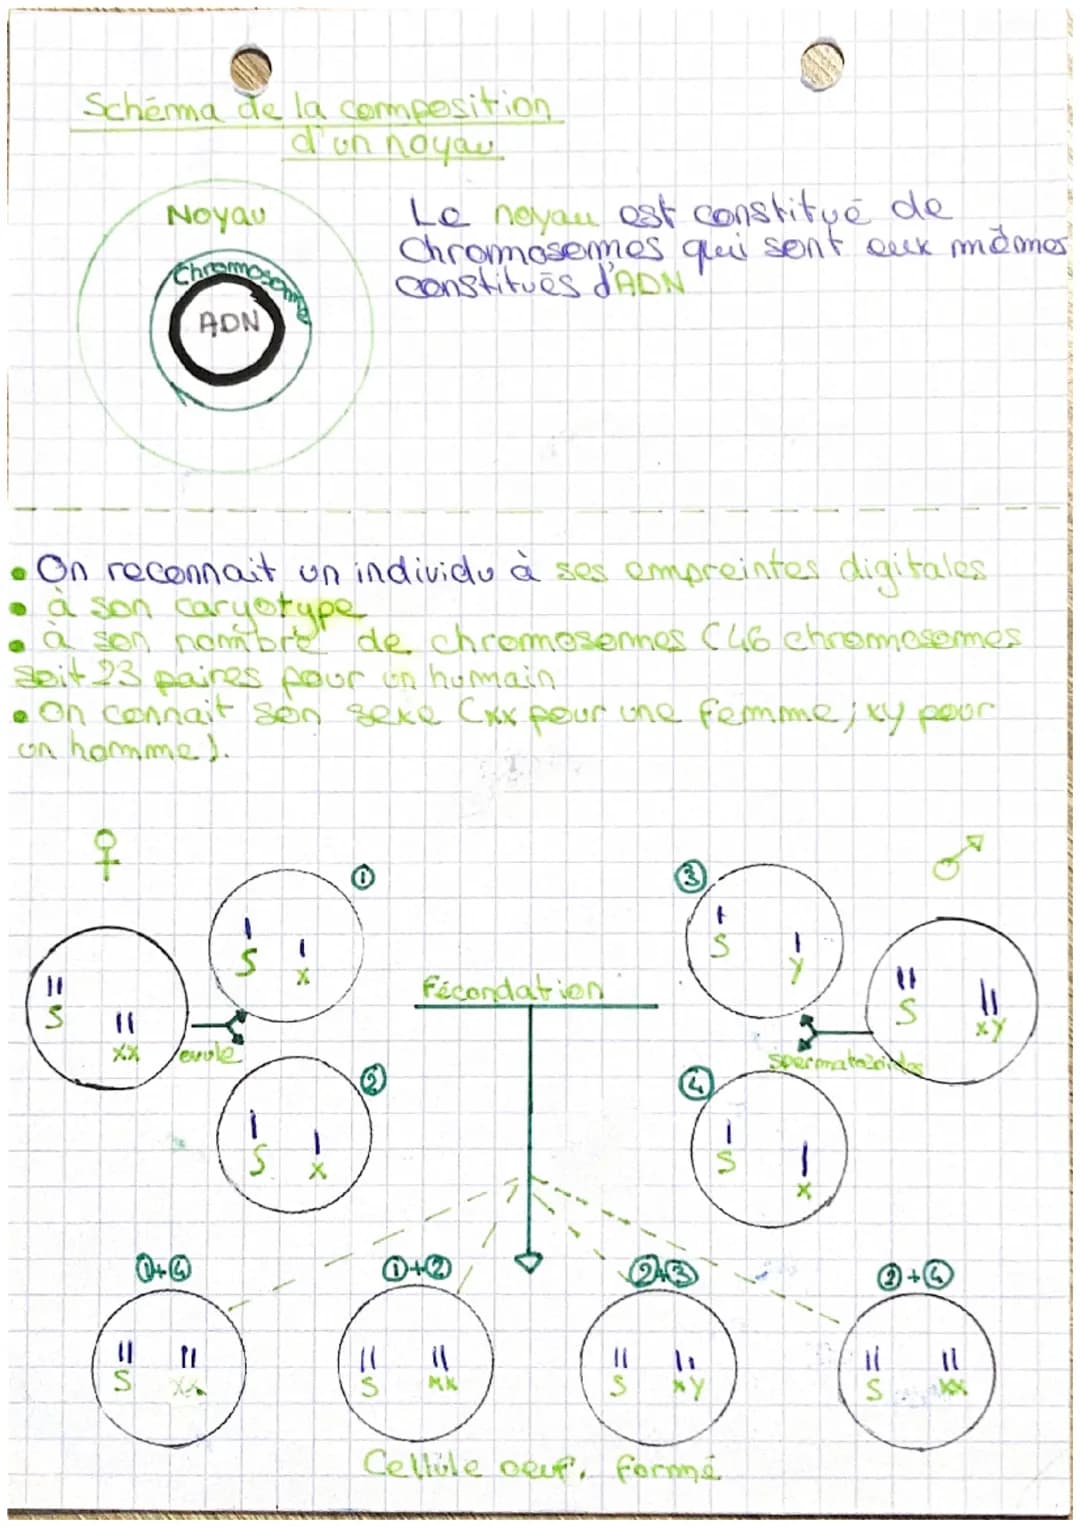 Schéma de la composition
d'un noyau
Noyau
Chromosome
ADN
Le noyau est constitué de
Chromosomes qui sont eux mêmes
constitués d'ADN
• On reconnait un individu à ses empreintes digitales
• à son caryotype
• à son nombre de chromosomes (46 chromosomes
soit 23 paires pour un humain
• On connait son sexe (xx pour une femme; xy pour
un homme).
♀
♂
① ③
S x
S y
S xx
S xy
Fécondation
ovule
spermatozoïdes
② ④
S x
S x
①+④ ①+② ②+③ ②+④
S
S xx
S xy
S xx
Cellule oeuf. formé